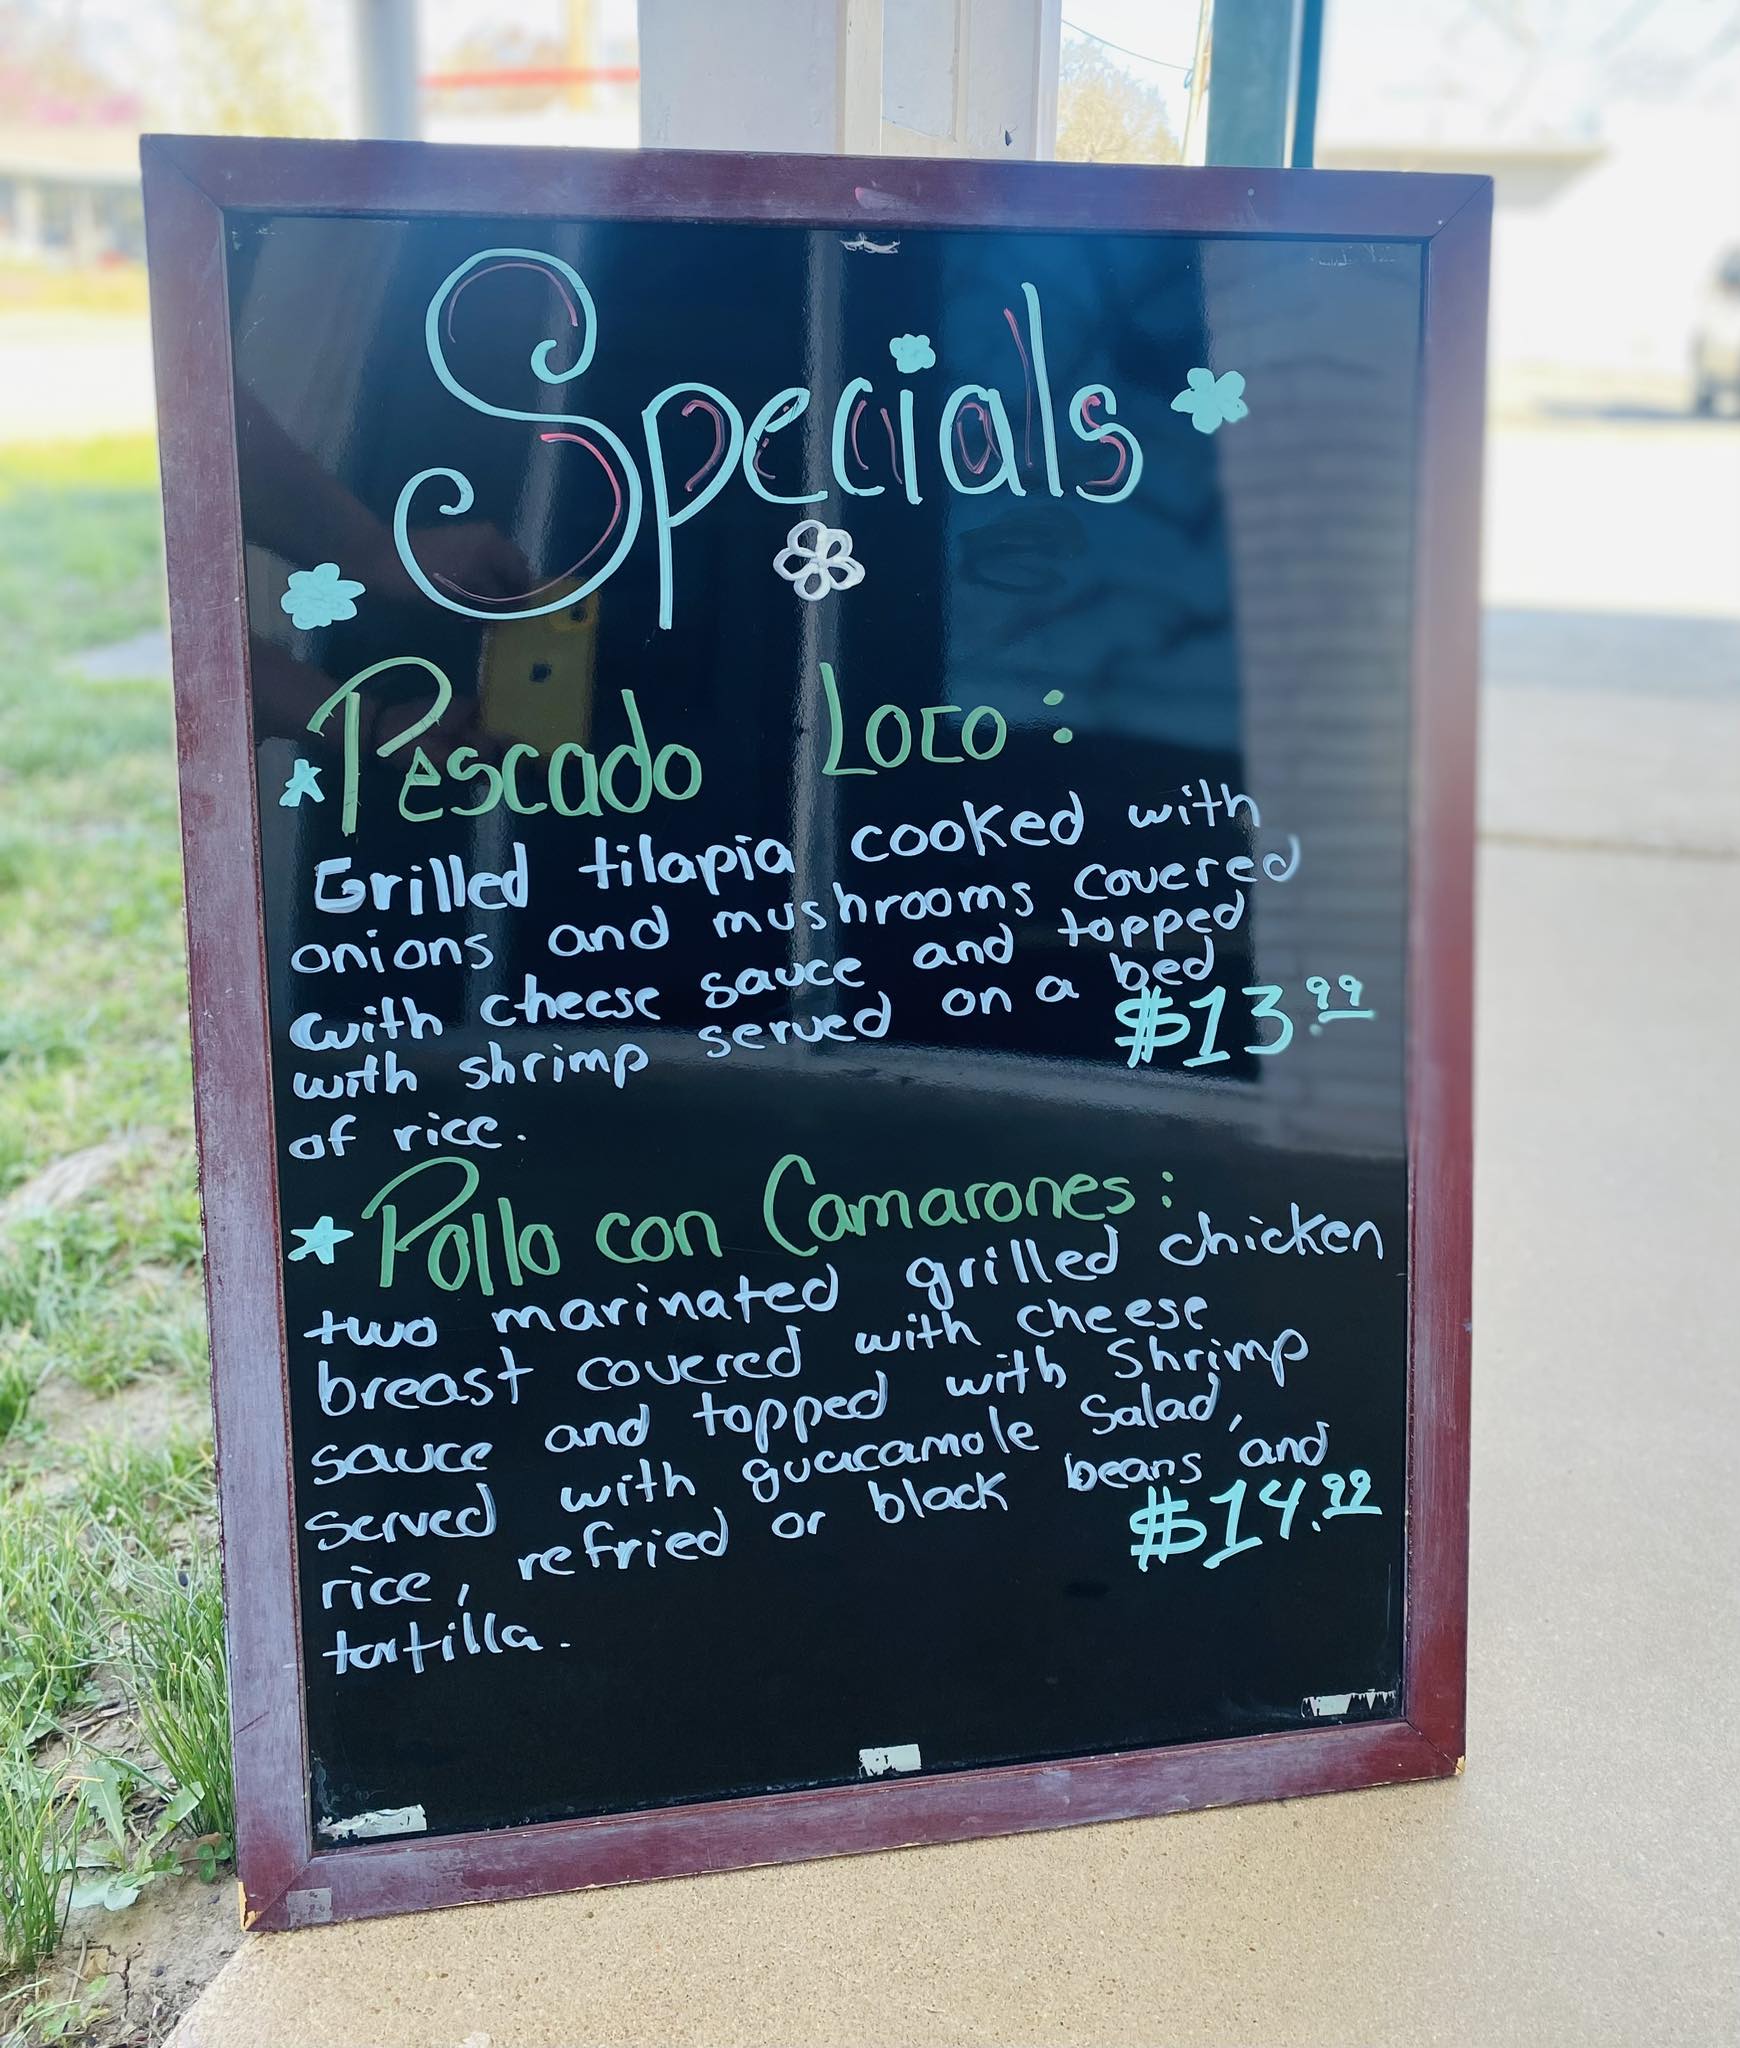 Specials
Pescado Loco:
Grilled tilapia cooked with
onions and mushrooms covered
with cheese sauce and topped
with shrimp served on a bed
$13.99
of rice.
Pollo con Camarones:
two marinated grilled chicken
breast covered with cheese
sauce and topped with Shrimp
served with guacamole Salad,
rice, refried or black beans and
$14.99
tortilla.